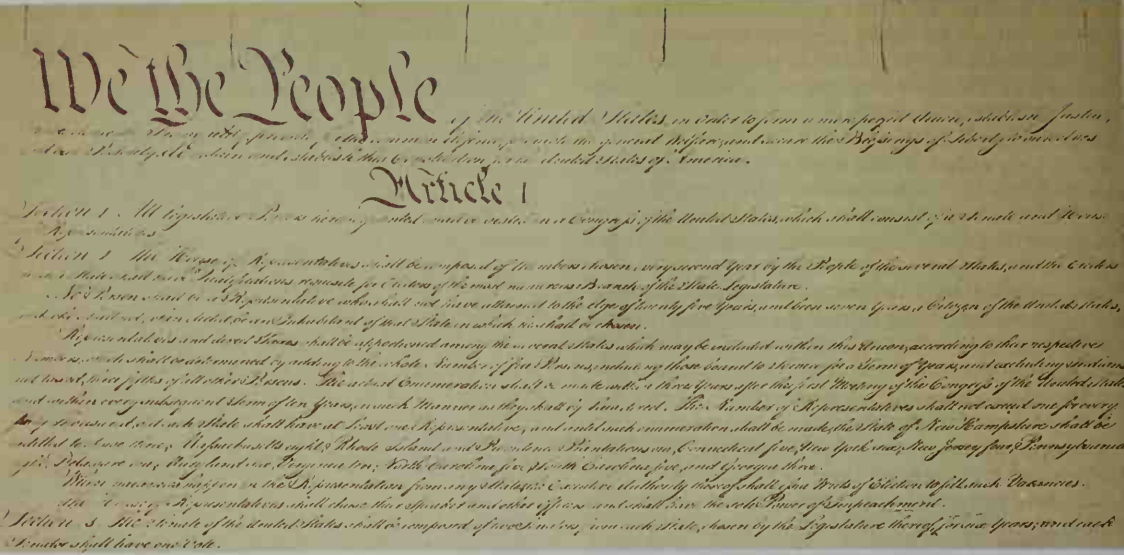 We the People of the United States, in Order to form a more perfect Union, establish Justice,
provide for the common defence, promote the general Welfare, and secure the Blessings of Liberty to ourselves
and our Posterity, do ordain and establish this Constitution for the United States of America.
Article I
Section 1. All legislative Powers herein granted shall be vested in a Congress of the United States, which shall consist of a Senate and House
Representatives.
Section the House of Representatives shall be composed of Members chosen every second Year by the People of the several States, and the Electors
in each State shall have Qualifications requisite for Electors of the most numerous Branch of the State Legislature.
No Person shall be a Representative who shall not have attained to the Age of twenty five Years, and been seven Years a Citizen of the United States,
and who shall not, when elected, be an Inhabitant of that State in which he shall be chosen.
Representatives and direct Taxes shall be apportioned among the several States which may be included within this Union, according to their respective
Numbers, which shall be determined by adding to the whole Number of free Persons, including those bound to Service for a Term of Years, and excluding Indians
not taxed, three fifths of all other Persons. The actual Enumeration shall be made within three Years after the first Meeting of the Congress of the United States,
and within every subsequent Term of ten Years, in such Manner as they shall by Law direct. The Number of Representatives shall not exceed one for every
thousand, but each State shall have at Least one Representative; and until such enumeration shall be made, the State of New Hampshire shall be
entitled to chuse three, Massachusetts eight, Rhode Island and Providence Plantations one, Connecticut five, New York six, New Jersey four, Pennsylvania
eight, Delaware one, Maryland six, Virginia ten, North Carolina five, South Carolina five, and Georgia three.
When vacancies happen in the Representation from any State, the Executive Authority thereof shall issue Writs of Election to fill such Vacancies.
the House of Representatives shall chuse their Speaker and other Officers; and shall have the sole Power of Impeachment.
Section 3. The Senate of the United States shall be composed of two Senators from each State, chosen by the Legislature thereof, for six Years; and each
Senator shall have one Vote.